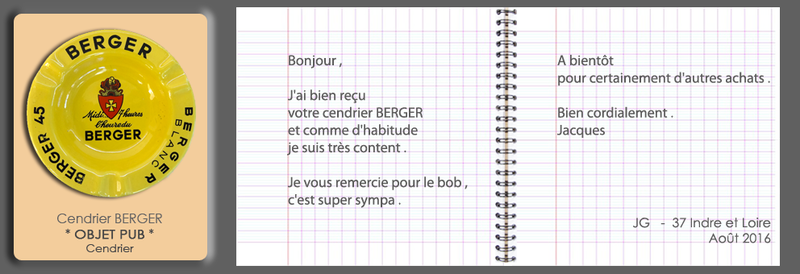 BERGER
BERGER 45
BERGER
BLANC
Midi. 7 heures
L'heure du
BERGER
Cendrier BERGER
* OBJET PUB *
Cendrier
Bonjour ,
J'ai bien reçu
votre cendrier BERGER
et comme d'habitude
je suis très content .
Je vous remercie pour le bob ,
c'est super sympa .
A bientôt
pour certainement d'autres achats .
Bien cordialement .
Jacques
JG - 37 Indre et Loire
Août 2016